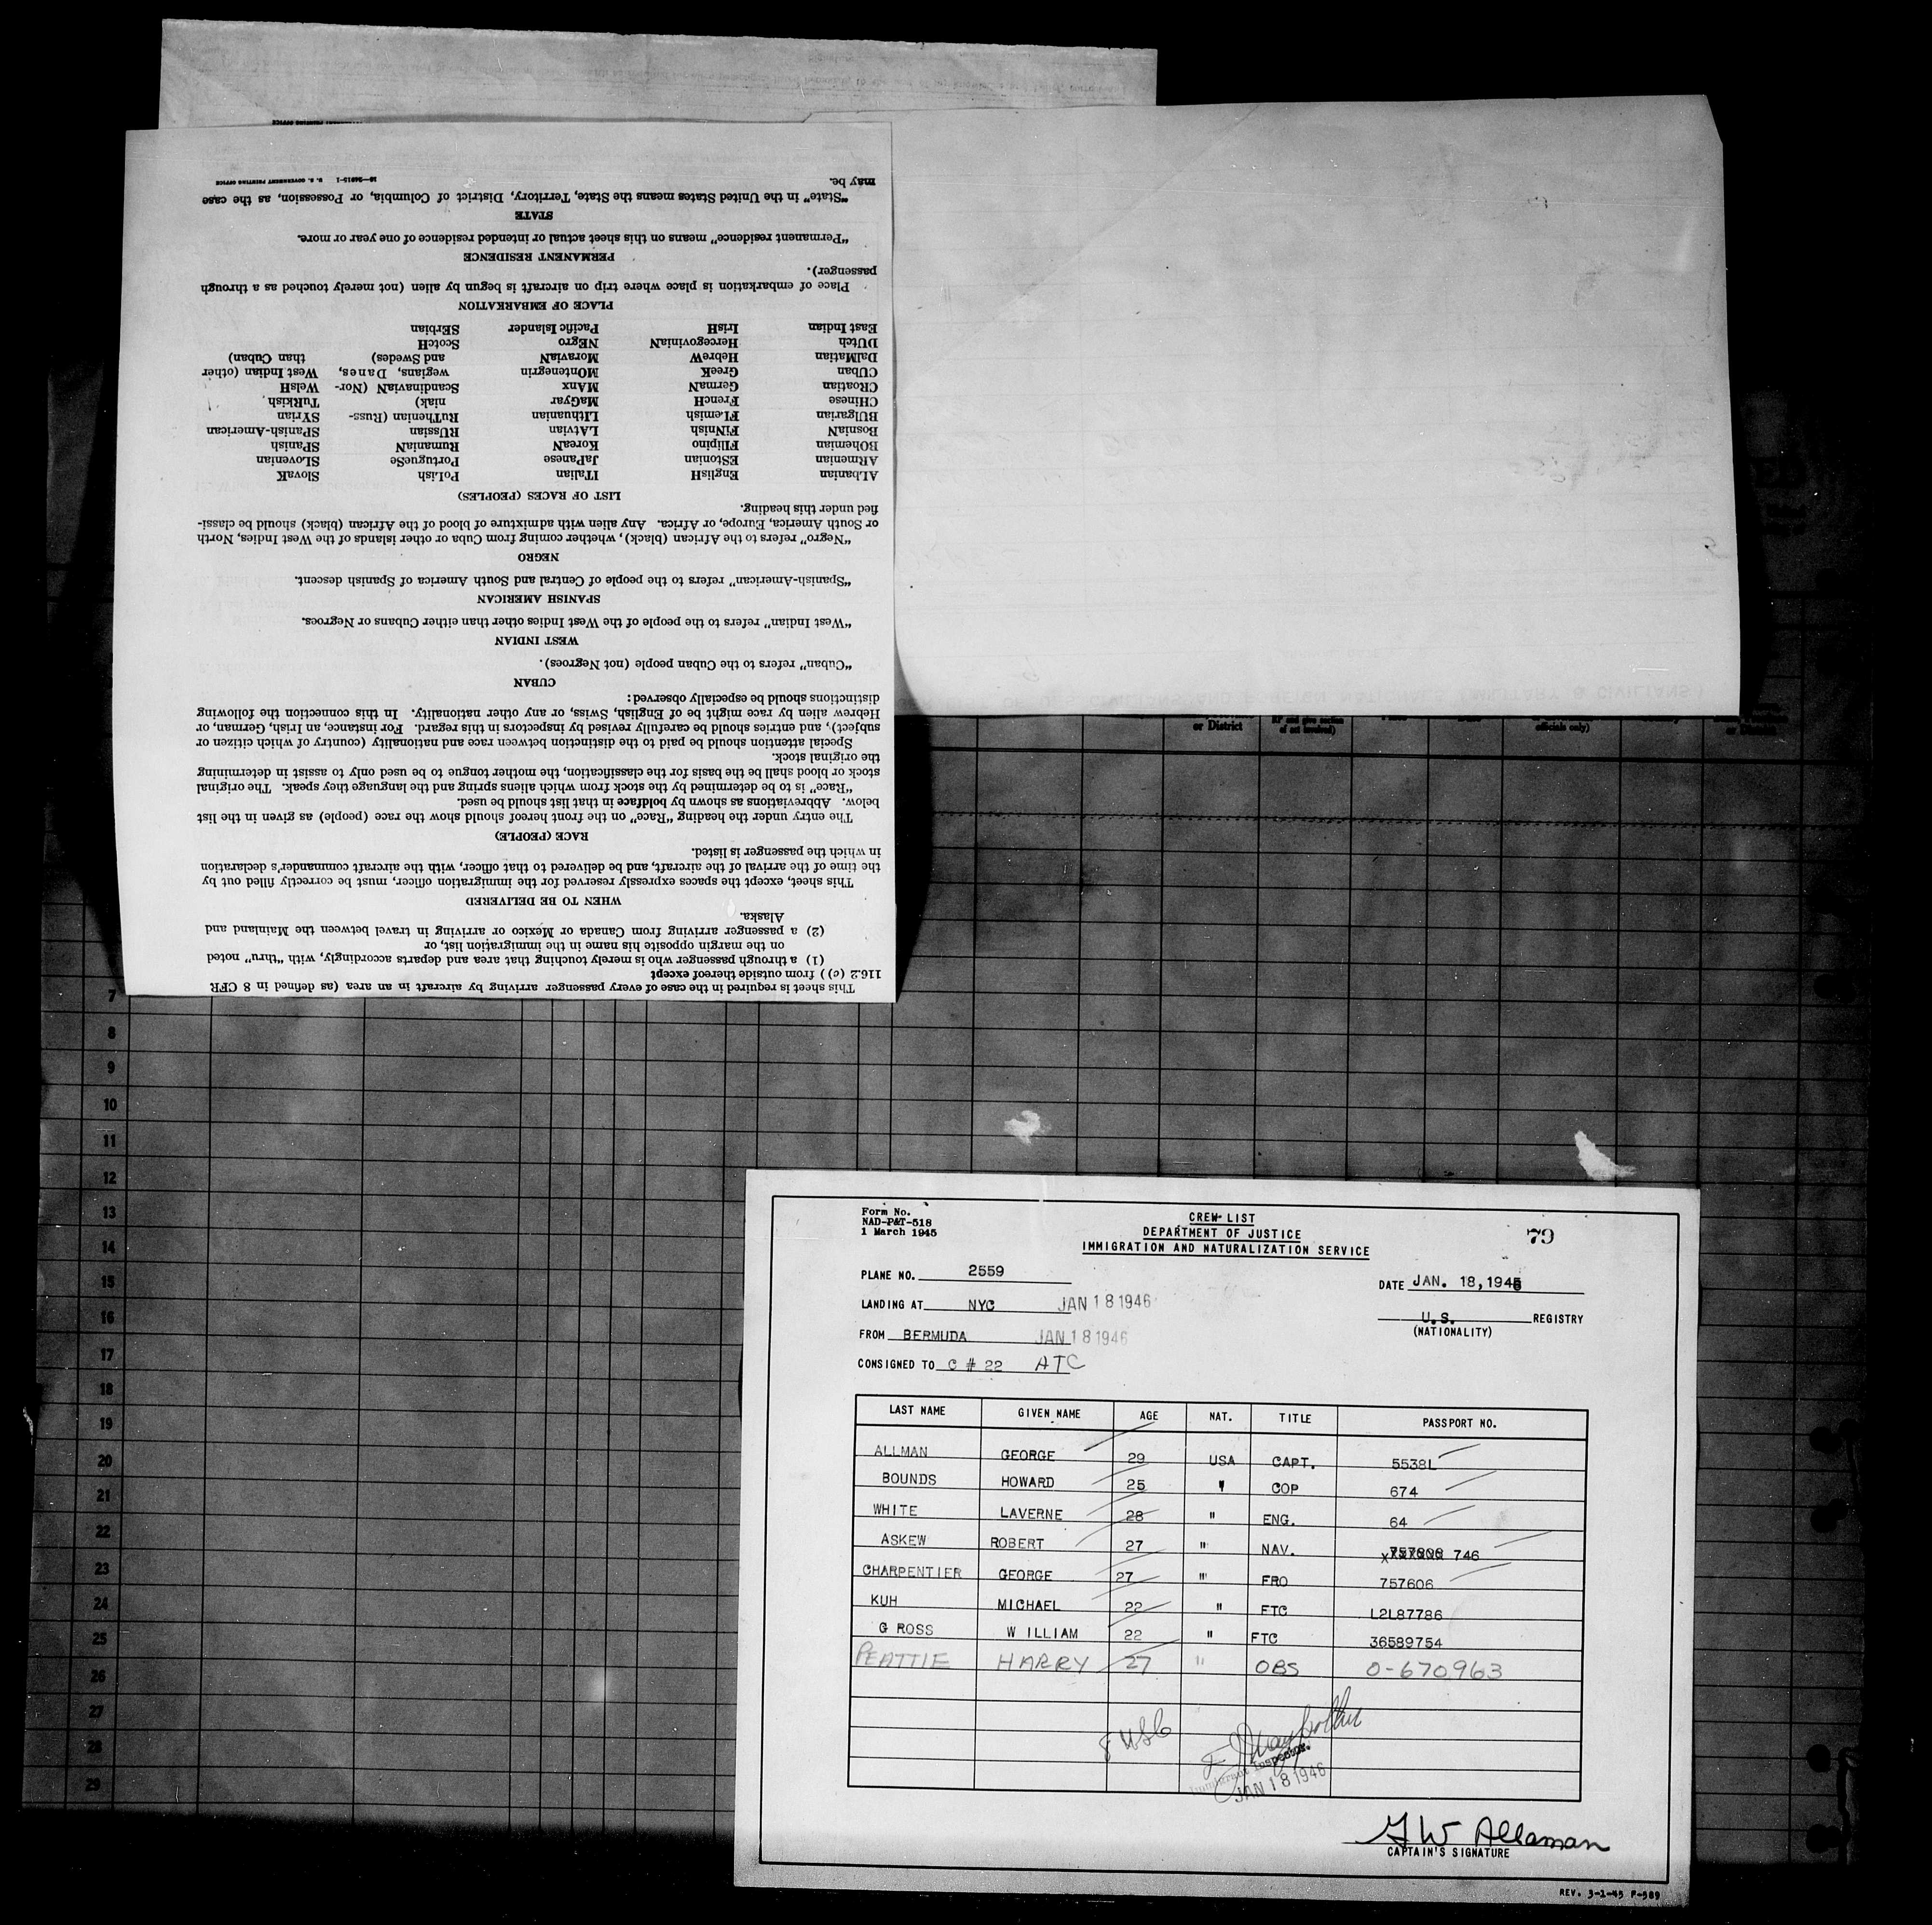 This sheet is required in the case of every passenger arriving by aircraft in an area (as defined in 8 CFR
116.2 (c)) from outside thereof except
(1) a through passenger who is merely touching that area and departs accordingly, with "thru" noted
on the margin opposite his name in the immigration list, or
(2) a passenger arriving from Canada or Mexico or arriving in travel between the Mainland and
Alaska.
WHEN TO BE DELIVERED
This sheet, except the spaces expressly reserved for the immigration officer, must be correctly filled out by
the time of the arrival of the aircraft, and be delivered to that officer, with the aircraft commander's declaration
in which the passenger is listed.
RACE (PEOPLE)
The entry under the heading "Race" on the front hereof should show the race (people) as given in the list
below. Abbreviations as shown by boldface in that list should be used.
"Race" is to be determined by the stock from which aliens spring and the language they speak. The original
stock or blood shall be the basis for the classification, the mother tongue to be used only to assist in determining
the original stock.
Special attention should be paid to the distinction between race and nationality (country of which citizen or
subject), and entries should be carefully revised by inspectors in this regard. For instance, an Irish, German, or
Hebrew alien by race might be of English, Swiss, or any other nationality. In this connection the following
distinctions should be especially observed:
CUBAN
"Cuban" refers to the Cuban people (not Negroes).
WEST INDIAN
"West Indian" refers to the people of the West Indies other than either Cubans or Negroes.
SPANISH AMERICAN
"Spanish-American" refers to the people of Central and South America of Spanish descent.
NEGRO
"Negro" refers to the African (black), whether coming from Cuba or other islands of the West Indies, North
or South America, Europe, or Africa. Any alien with admixture of blood of the African (black) should be classi-
fied under this heading.
LIST OF RACES (PEOPLES)
ALbanian EnglisH ITalian PoLish SlovaK
ARmenian EStonian JaPanese PortugueSe SLovenian
BOhemian FIlipino KoreaN RumaniaN SPanish
BosniaN FINnish LAtvian RUssian SPanish-American
BUlgarian FLemish LIthuanian RuThenian (Russ- SYrian
CHinese FrencH MaGyar niak) TuRkish
CRoatian GermaN MAnx ScandinaviaN (Nor- WelsH
CUban GreeK MOntenegrin wegians, Danes, West Indian (other
DalMatian HebreW MoraviaN and Swedes) than Cuban)
DUtch HercegovinIaN NEgro ScotcH
East Indian IrisH Pacific Islander SErbian
PLACE OF EMBARKATION
Place of embarkation is place where trip on aircraft is begun by alien (not merely touched as a through
passenger).
PERMANENT RESIDENCE
"Permanent residence" means on this sheet actual or intended residence of one year or more.
STATE
"State" in the United States means the State, Territory, District of Columbia, or Possession, as the case
may be.
16—24015-1 U. S. GOVERNMENT PRINTING OFFICE
or District
officials only)
7
8
9
10
11
12
13
14
15
16
17
18
19
20
21
22
23
24
25
26
27
28
29
Form No.
NAD-P&T-518
1 March 1945
CREW LIST
DEPARTMENT OF JUSTICE
IMMIGRATION AND NATURALIZATION SERVICE
79
PLANE NO. 2559
DATE JAN. 18, 1946
LANDING AT NYC JAN 18 1946
U.S. REGISTRY
(NATIONALITY)
FROM BERMUDA JAN 18 1946
CONSIGNED TO C # 22 ATC
LAST NAME GIVEN NAME AGE NAT. TITLE PASSPORT NO.
ALLMAN GEORGE 29 USA CAPT. 5538L
BOUNDS HOWARD 25 " COP 674
WHITE LAVERNE 28 " ENG. 64
ASKEW ROBERT 27 " NAV. 746
CHARPENTIER GEORGE 27 " FRO 757606
KUH MICHAEL 22 " FTC L2L87786
G ROSS W ILLIAM 22 " FTC 36589754
PEATTIE HARRY 27 " OBS O-670963
8 USC
Immigrant Inspector.
JAN 18 1946
G W Allaman
CAPTAIN'S SIGNATURE
REV. 3-1-45 P-589